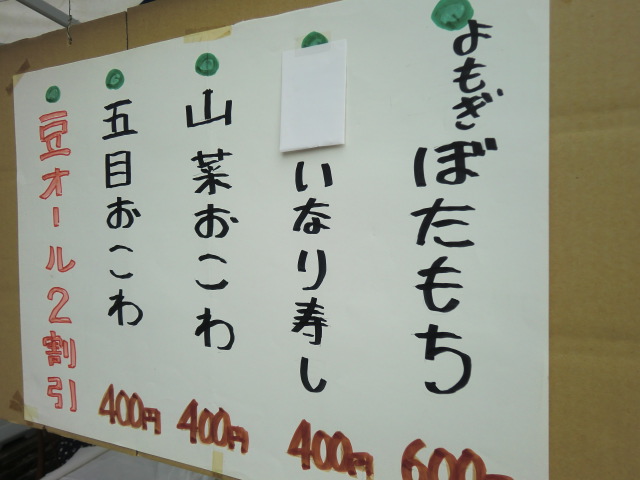 よもぎぼたもち 600
いなり寿し 400円
山菜おこわ 400円
五目おこわ 400円
豆オール2割引